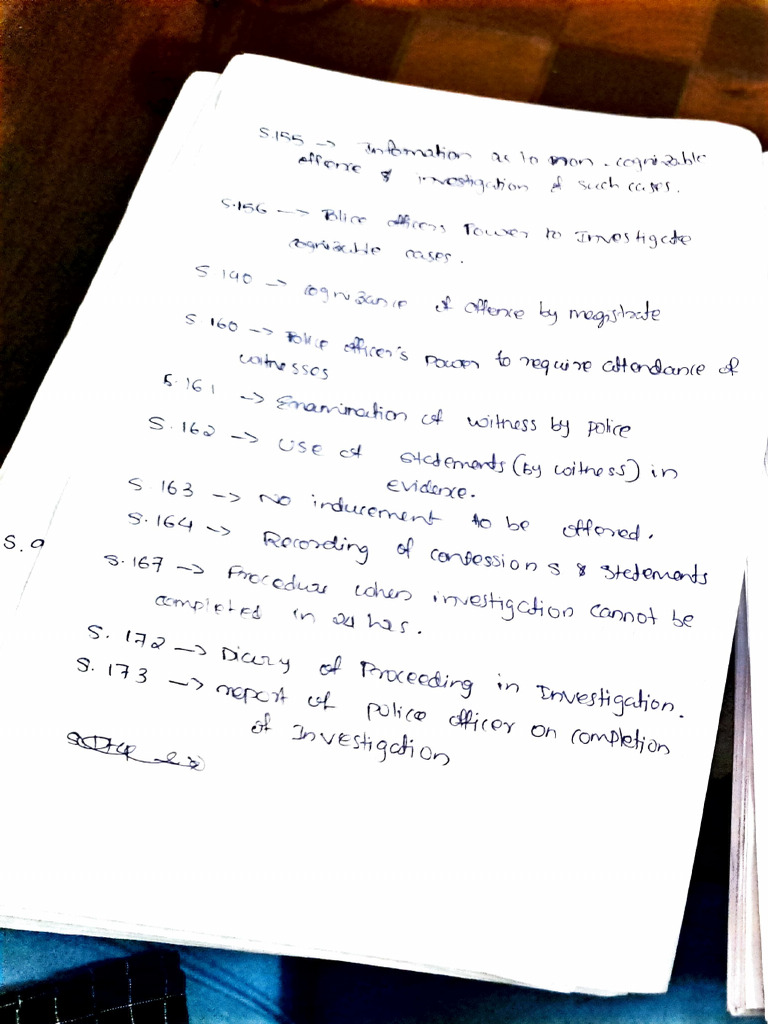 S.155 -> Information as to non-cognizable
offence & investigation of such cases.
S.156 -> Police officers Power to Investigate
cognizable cases.
S 190 -> cognizance of offence by magistrate
S 160 -> Police officer's power to require attendance of
witnesses
S.161 -> Examination of witness by police
S.162 -> Use of statements (by witness) in
Evidence.
S.163 -> No inducement to be offered.
S.164 -> Recording of confessions & statements
S.9
S.167 -> Procedure when investigation cannot be
completed in 24 hrs.
S. 172 -> Diary of Proceeding in Investigation.
S. 173 -> report of police officer on completion
of Investigation